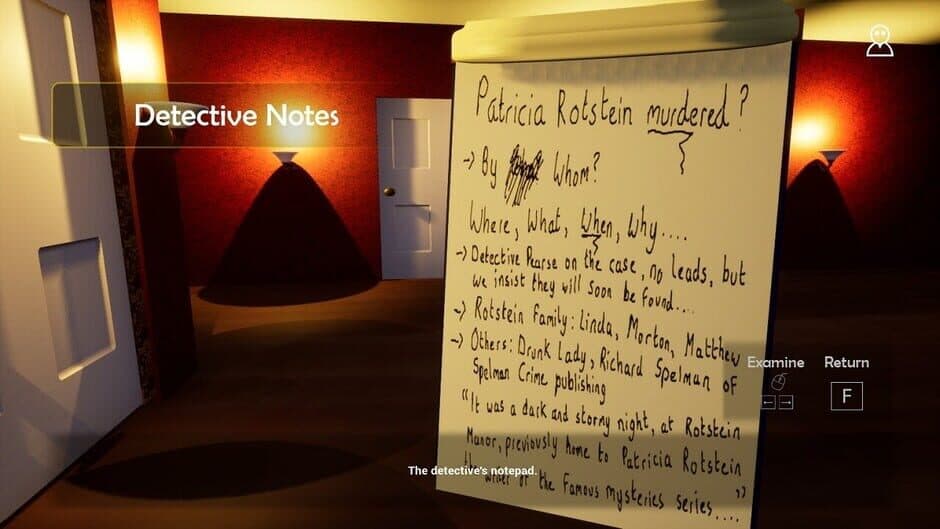 Detective Notes
Patricia Rotstein murdered?
-> By Whom?
Where, What, When, Why....
-> Detective Pearse on the case, no leads, but
we insist they will soon be found....
-> Rotstein Family: Linda, Morton, Matthew
-> Others: Drunk Lady, Richard Spelman of
Spelman Crime publishing
"It was a dark and stormy night, at Rotstein
Manor, previously home to Patricia Rotstein
writer of the Famous mysteries series...."
Examine Return
F
The detective's notepad.